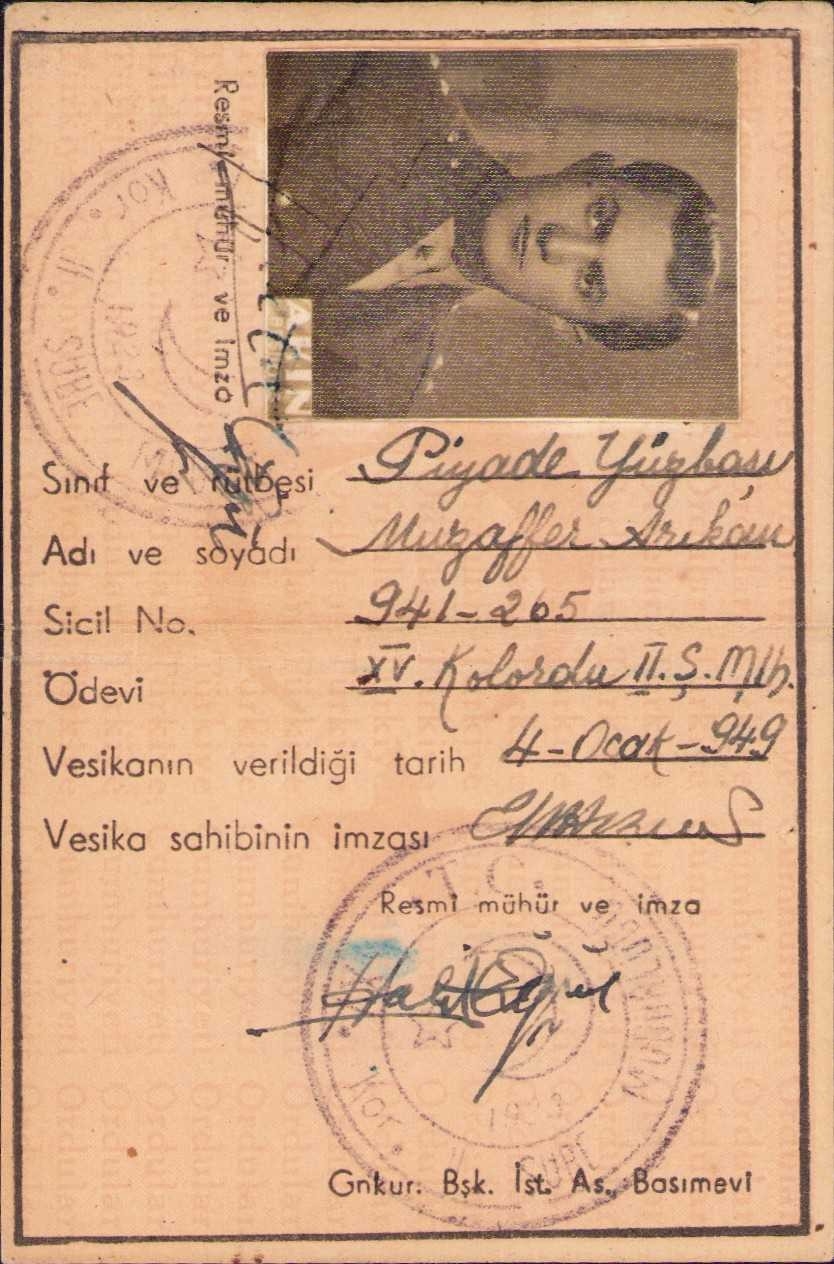 Resmi mühür ve imza
Sınıf ve rütbesi Piyade Yüzbaşı
Adı ve soyadı Muzaffer Arıkan
Sicil No. 941-265
Ödevi XV. Kolordu II. Ş. Mlh.
Vesikanın verildiği tarih 4-Ocak-949
Vesika sahibinin imzası
Resmî mühür ve imza
T.C.
Kor. II. ŞUBE
1923
Gnkur. Bşk. İst. As. Basımevi